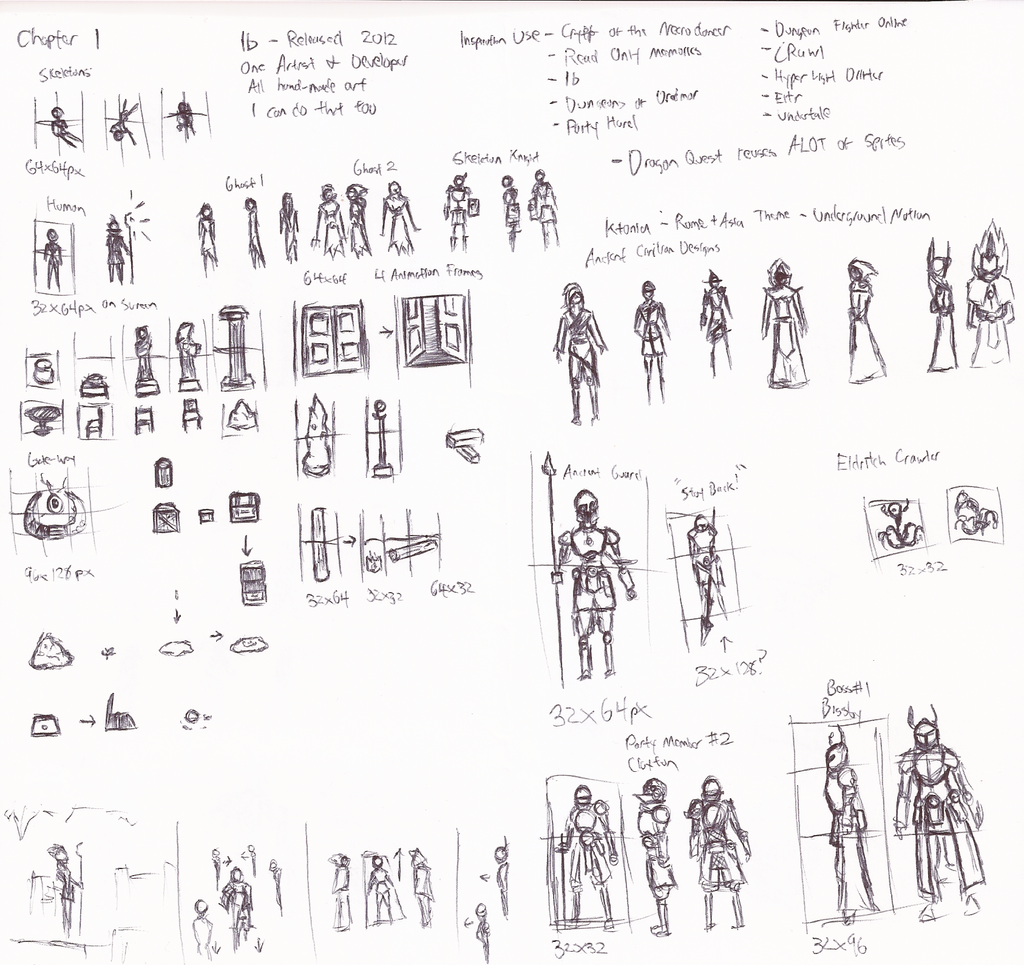 Chapter 1
Ib - Released 2012
One Artist & Developer
All hand-made art
I can do that too
Inspiration Use - Crypt of the Necrodancer
- Read Only Memories
- Ib
- Dungeons of Dredmor
- Party Hard
- Dungeon Fighter Online
- Crawl
- Hyper Light Drifter
- Eitr
- Undertale
- Dragon Quest reuses ALOT of Sprites
Skeletons
64x64px
Human
32x64px on Screen
Ghost 1
Ghost 2
Skeleton Knight
64x64
4 Animation Frames
- Rome + Asia Theme - Underground Nation
Ancient Civilian Designs
Gateway
96x128px
32x64
32x32
64x32
Ancient Guard
"Stay Back!"
32x64px
32x128?
Eldritch Crawler
32x32
Party Member #2
32x32
Boss #1
32x96